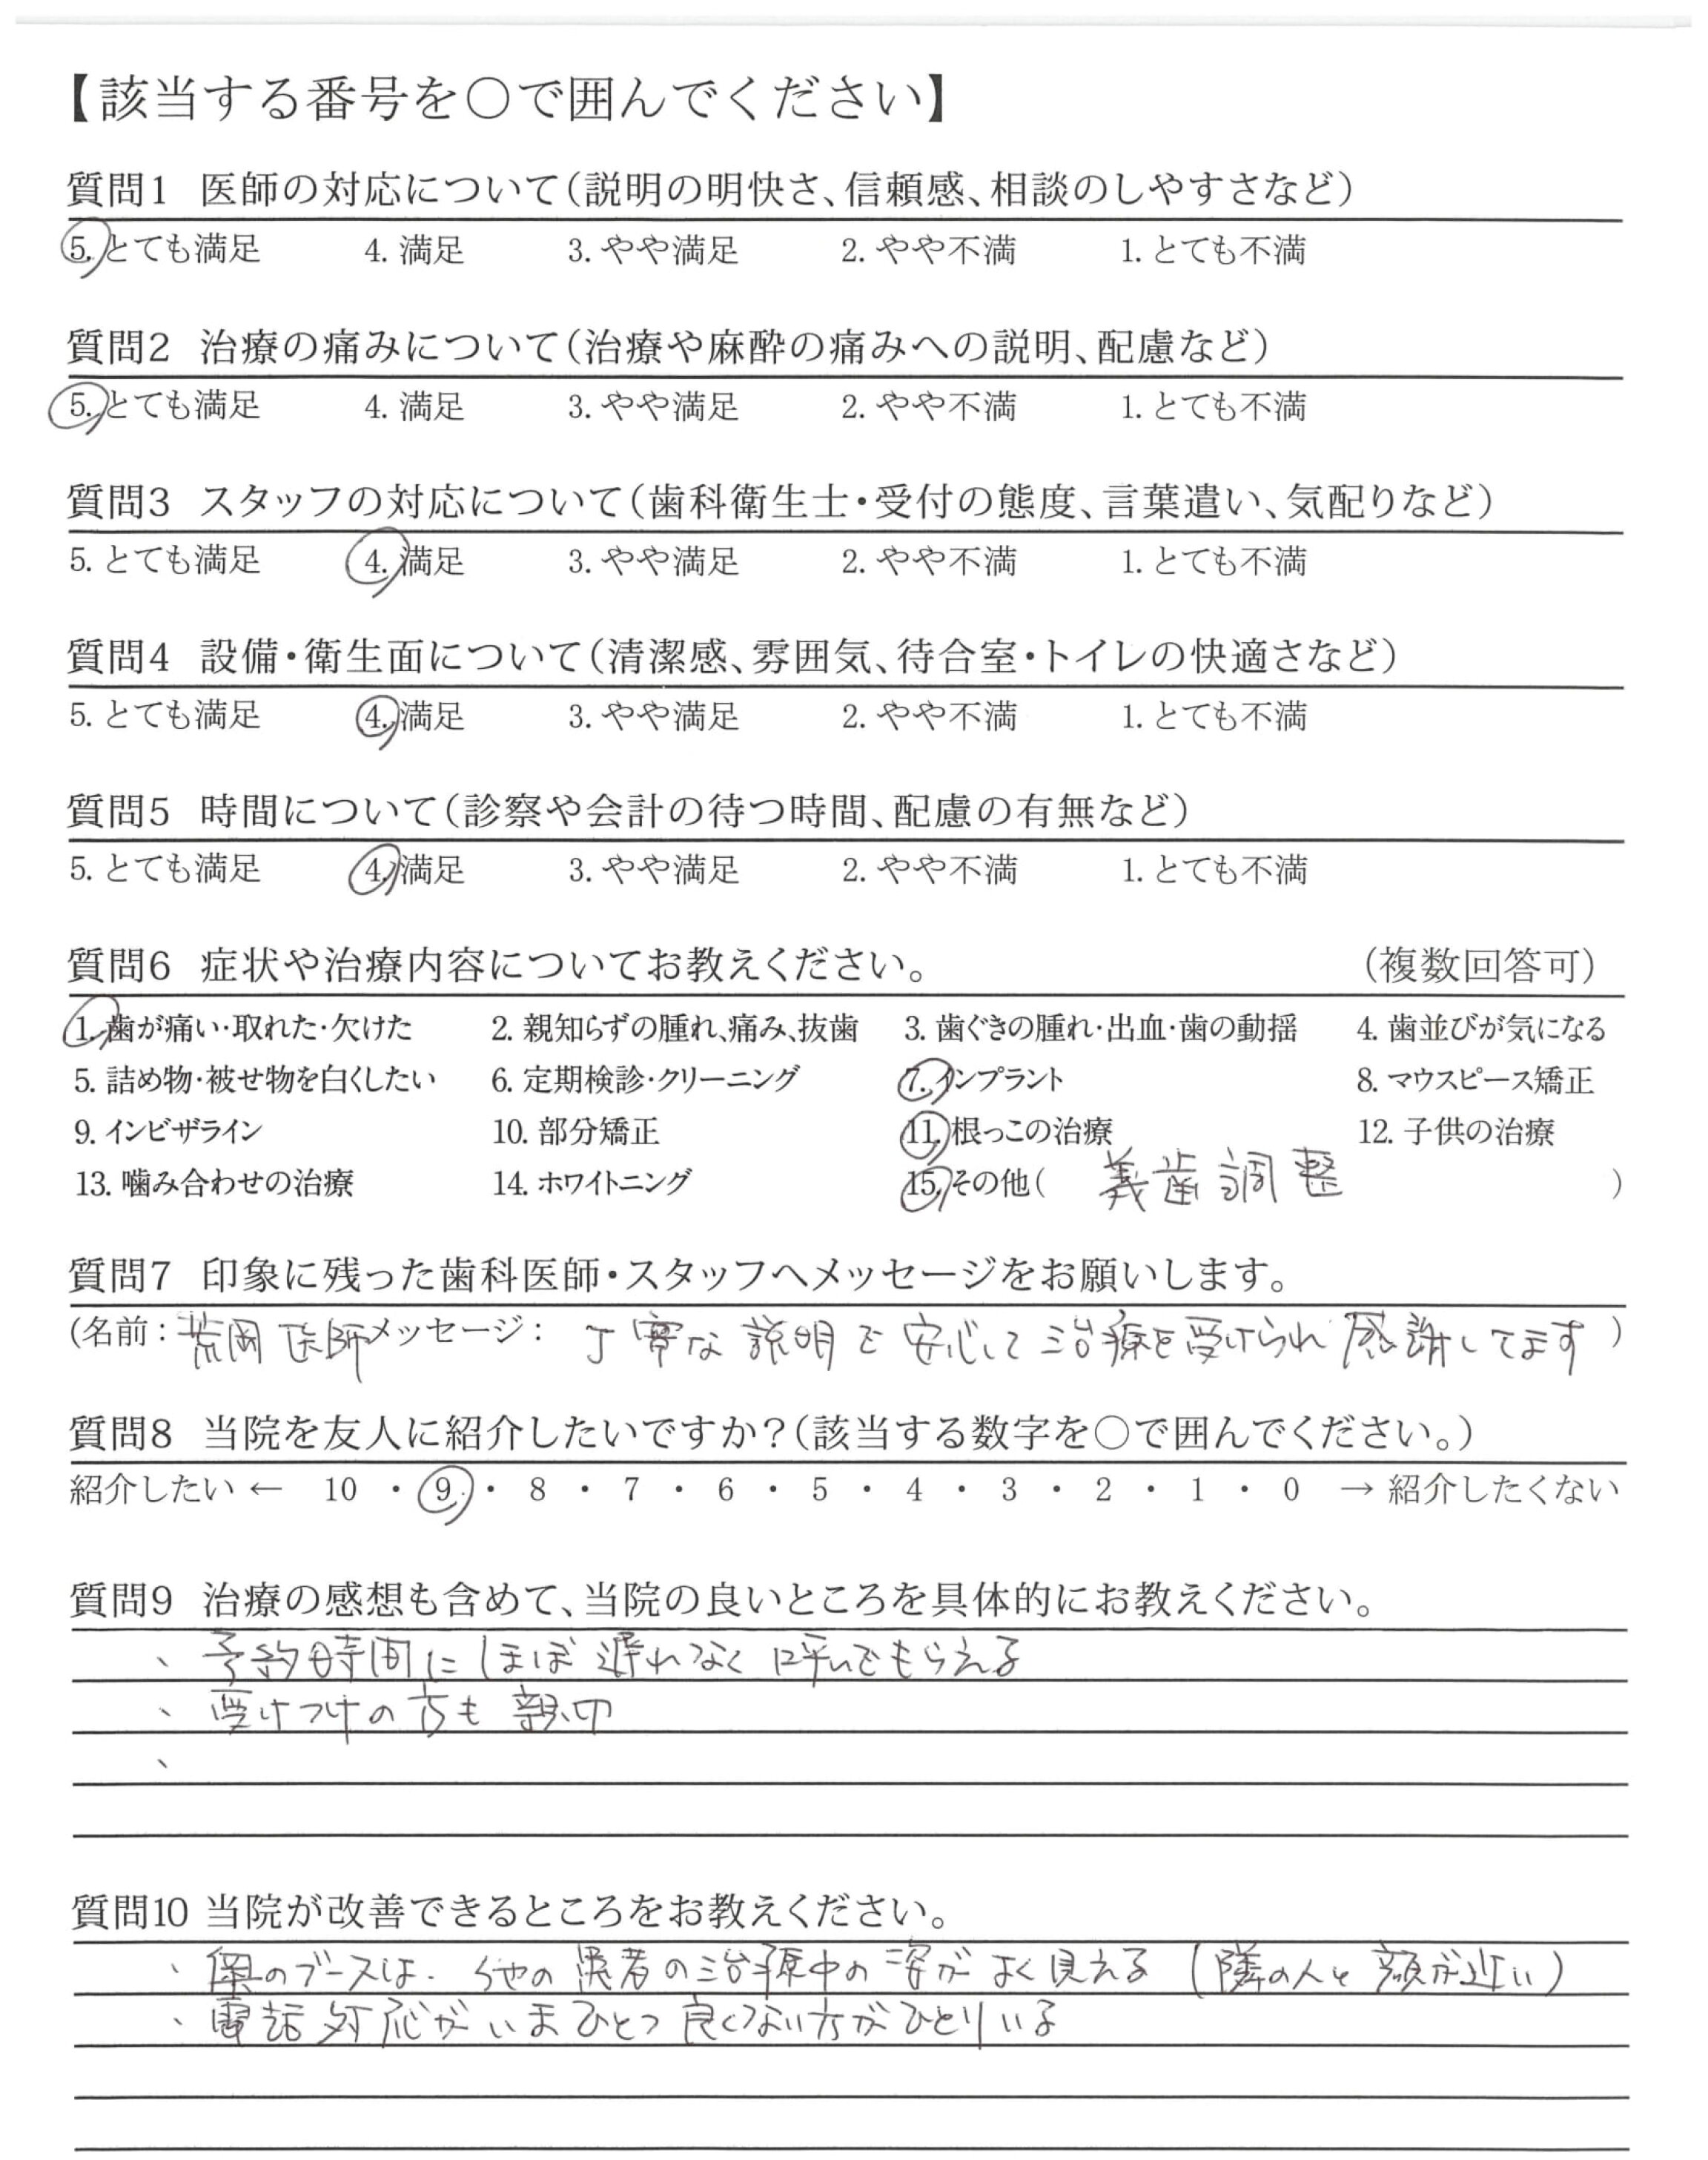 【該当する番号を○で囲んでください】
質問1 医師の対応について(説明の明快さ、信頼感、相談のしやすさなど)
5. とても満足 4. 満足 3. やや満足 2. やや不満 1. とても不満
質問2 治療の痛みについて(治療や麻酔の痛みへの説明、配慮など)
5. とても満足 4. 満足 3. やや満足 2. やや不満 1. とても不満
質問3 スタッフの対応について(歯科衛生士・受付の態度、言葉遣い、気配りなど)
5. とても満足 4. 満足 3. やや満足 2. やや不満 1. とても不満
質問4 設備・衛生面について(清潔感、雰囲気、待合室・トイレの快適さなど)
5. とても満足 4. 満足 3. やや満足 2. やや不満 1. とても不満
質問5 時間について(診察や会計の待つ時間、配慮の有無など)
5. とても満足 4. 満足 3. やや満足 2. やや不満 1. とても不満
質問6 症状や治療内容についてお教えください。 (複数回答可)
1. 歯が痛い・取れた・欠けた 2. 親知らずの腫れ、痛み、抜歯 3. 歯ぐきの腫れ・出血・歯の動揺 4. 歯並びが気になる
5. 詰め物・被せ物を白くしたい 6. 定期検診・クリーニング 7. インプラント 8. マウスピース矯正
9. インビザライン 10. 部分矯正 11. 根っこの治療 12. 子供の治療
13. 噛み合わせの治療 14. ホワイトニング 15. その他( 義歯調整 )
質問7 印象に残った歯科医師・スタッフへメッセージをお願いします。
(名前: 荒岡医師 メッセージ: 丁寧な説明で安心して治療を受けられ感謝してます )
質問8 当院を友人に紹介したいですか?(該当する数字を○で囲んでください。)
紹介したい ← 10 ・ 9 ・ 8 ・ 7 ・ 6 ・ 5 ・ 4 ・ 3 ・ 2 ・ 1 ・ 0 → 紹介したくない
質問9 治療の感想も含めて、当院の良いところを具体的にお教えください。
、予約時間にほぼ遅れなく呼んでもらえる
、受けつけの方も親切
、
質問10 当院が改善できるところをお教えください。
、奥のブースは、他の患者の治療中の姿がよく見える(隣の人と顔が近い)
、電話対応がいまひとつ良くない方がひとりいる